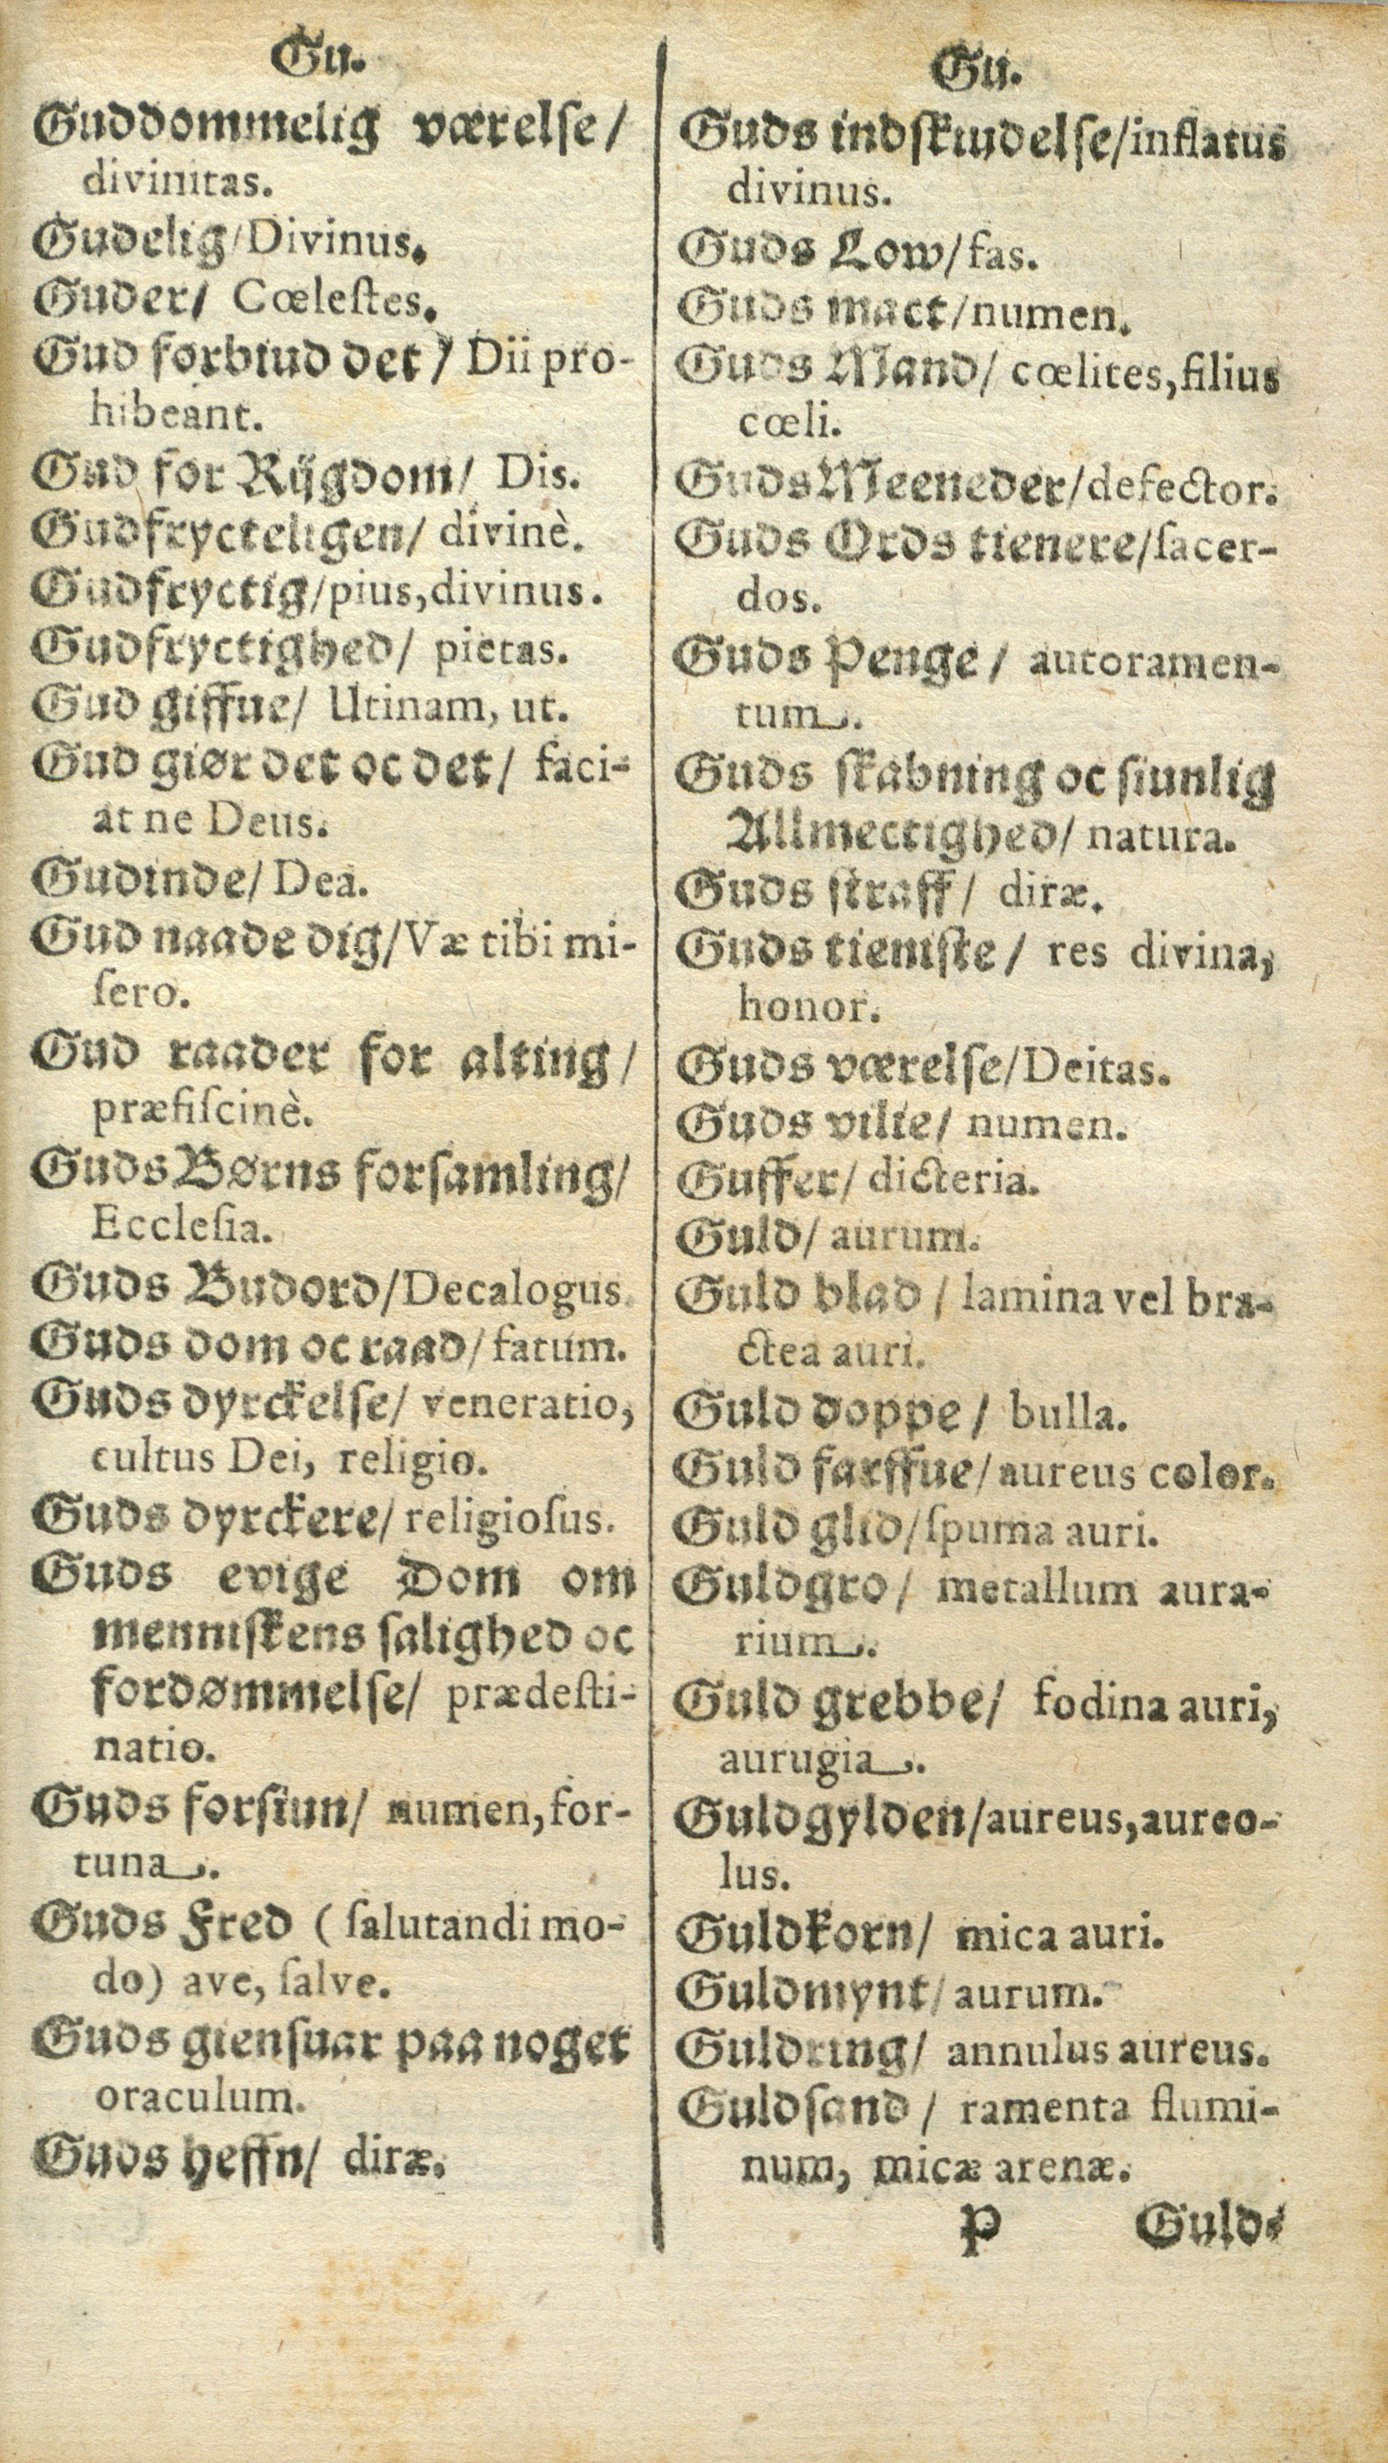 Gu.
Guddommelig værelse/
divinitas.
Gudelig/Divinus.
Guder/ Cœleſtes.
Gud forbiud det/ Dii pro-
hibeant.
Gud for Rijgdom/ Dis.
Gudfrycteligen/ divinè.
Gudfryctig/pius,divinus.
Gudfryctighed/ pietas.
Gud giffue/ Utinam, ut.
Gud giør det oc det/ faci-
at ne Deus.
Gudinde/ Dea.
Gud naade dig/Væ tibi mi-
ſero.
Gud raader for alting/
præfiſcinè.
Guds Børns forſamling/
Eccleſia.
Guds Budord/Decalogus.
Guds dom oc raad/ fatum.
Guds dyrckelſe/ veneratio,
cultus Dei, religio.
Guds dyrckere/ religioſus.
Guds evige Dom om
menniſkens ſalighed oc
fordømmelſe/ prædeſti-
natio.
Guds forſiun/ numen, for-
tuna.
Guds Fred (ſalutandi mo-
do) ave, ſalve.
Guds gienſuar paa noget
oraculum.
Guds heffn/ diræ.
Gu.
Guds indſkiudelſe/inflatus
divinus.
Guds Low/fas.
Guds mact/numen.
Guds Mand/ cœlites,filius
cœli.
Guds Meeneder/defector.
Guds Ords tienere/ſacer-
dos.
Guds Penge/ autoramen-
tum.
Guds ſkabning oc ſiunlig
Allmectighed/ natura.
Guds ſtraff/ diræ.
Guds tieniſte/ res divina,
honor.
Guds værelſe/Deitas.
Guds vilie/ numen.
Guffer/ dicteria.
Guld/ aurum.
Guld blad/ lamina vel bra-
ctea auri.
Guld doppe/ bulla.
Guld farffue/aureus color.
Guld glid/ſpuma auri.
Guldgro/ metallum aura-
rium.
Guld grebbe/ fodina auri,
aurugia.
Guldgylden/aureus,aureo-
lus.
Guldkorn/ mica auri.
Guldmynt/ aurum.
Guldring/ annulus aureus.
Guldſand/ ramenta flumi-
num, micæ arenæ.
P Guld-